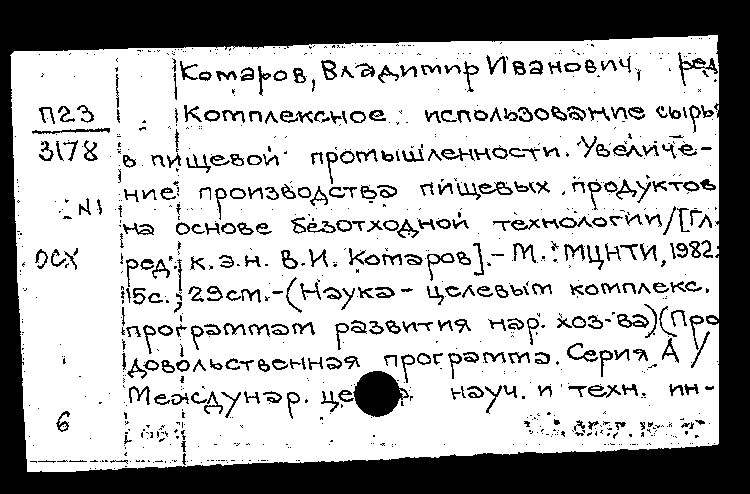 Комаров, Владимир Иванович, ред
П23
3178
Комплексное использование сырь
в пищевой промышленности. Увеличе-
ние производства пищевых продуктов
N1
на основе безотходной технологии/[Гл.
ОСХ
ред. к.э.н. В.И. Комаров].- М.: МЦНТИ, 1982.
15с.; 29см.-(Наука - целевым комплекс.
программам развития нар. хоз-ва)(Про
довольственная программа. Серия А /
Междунар. це р. науч. и техн. ин-
6